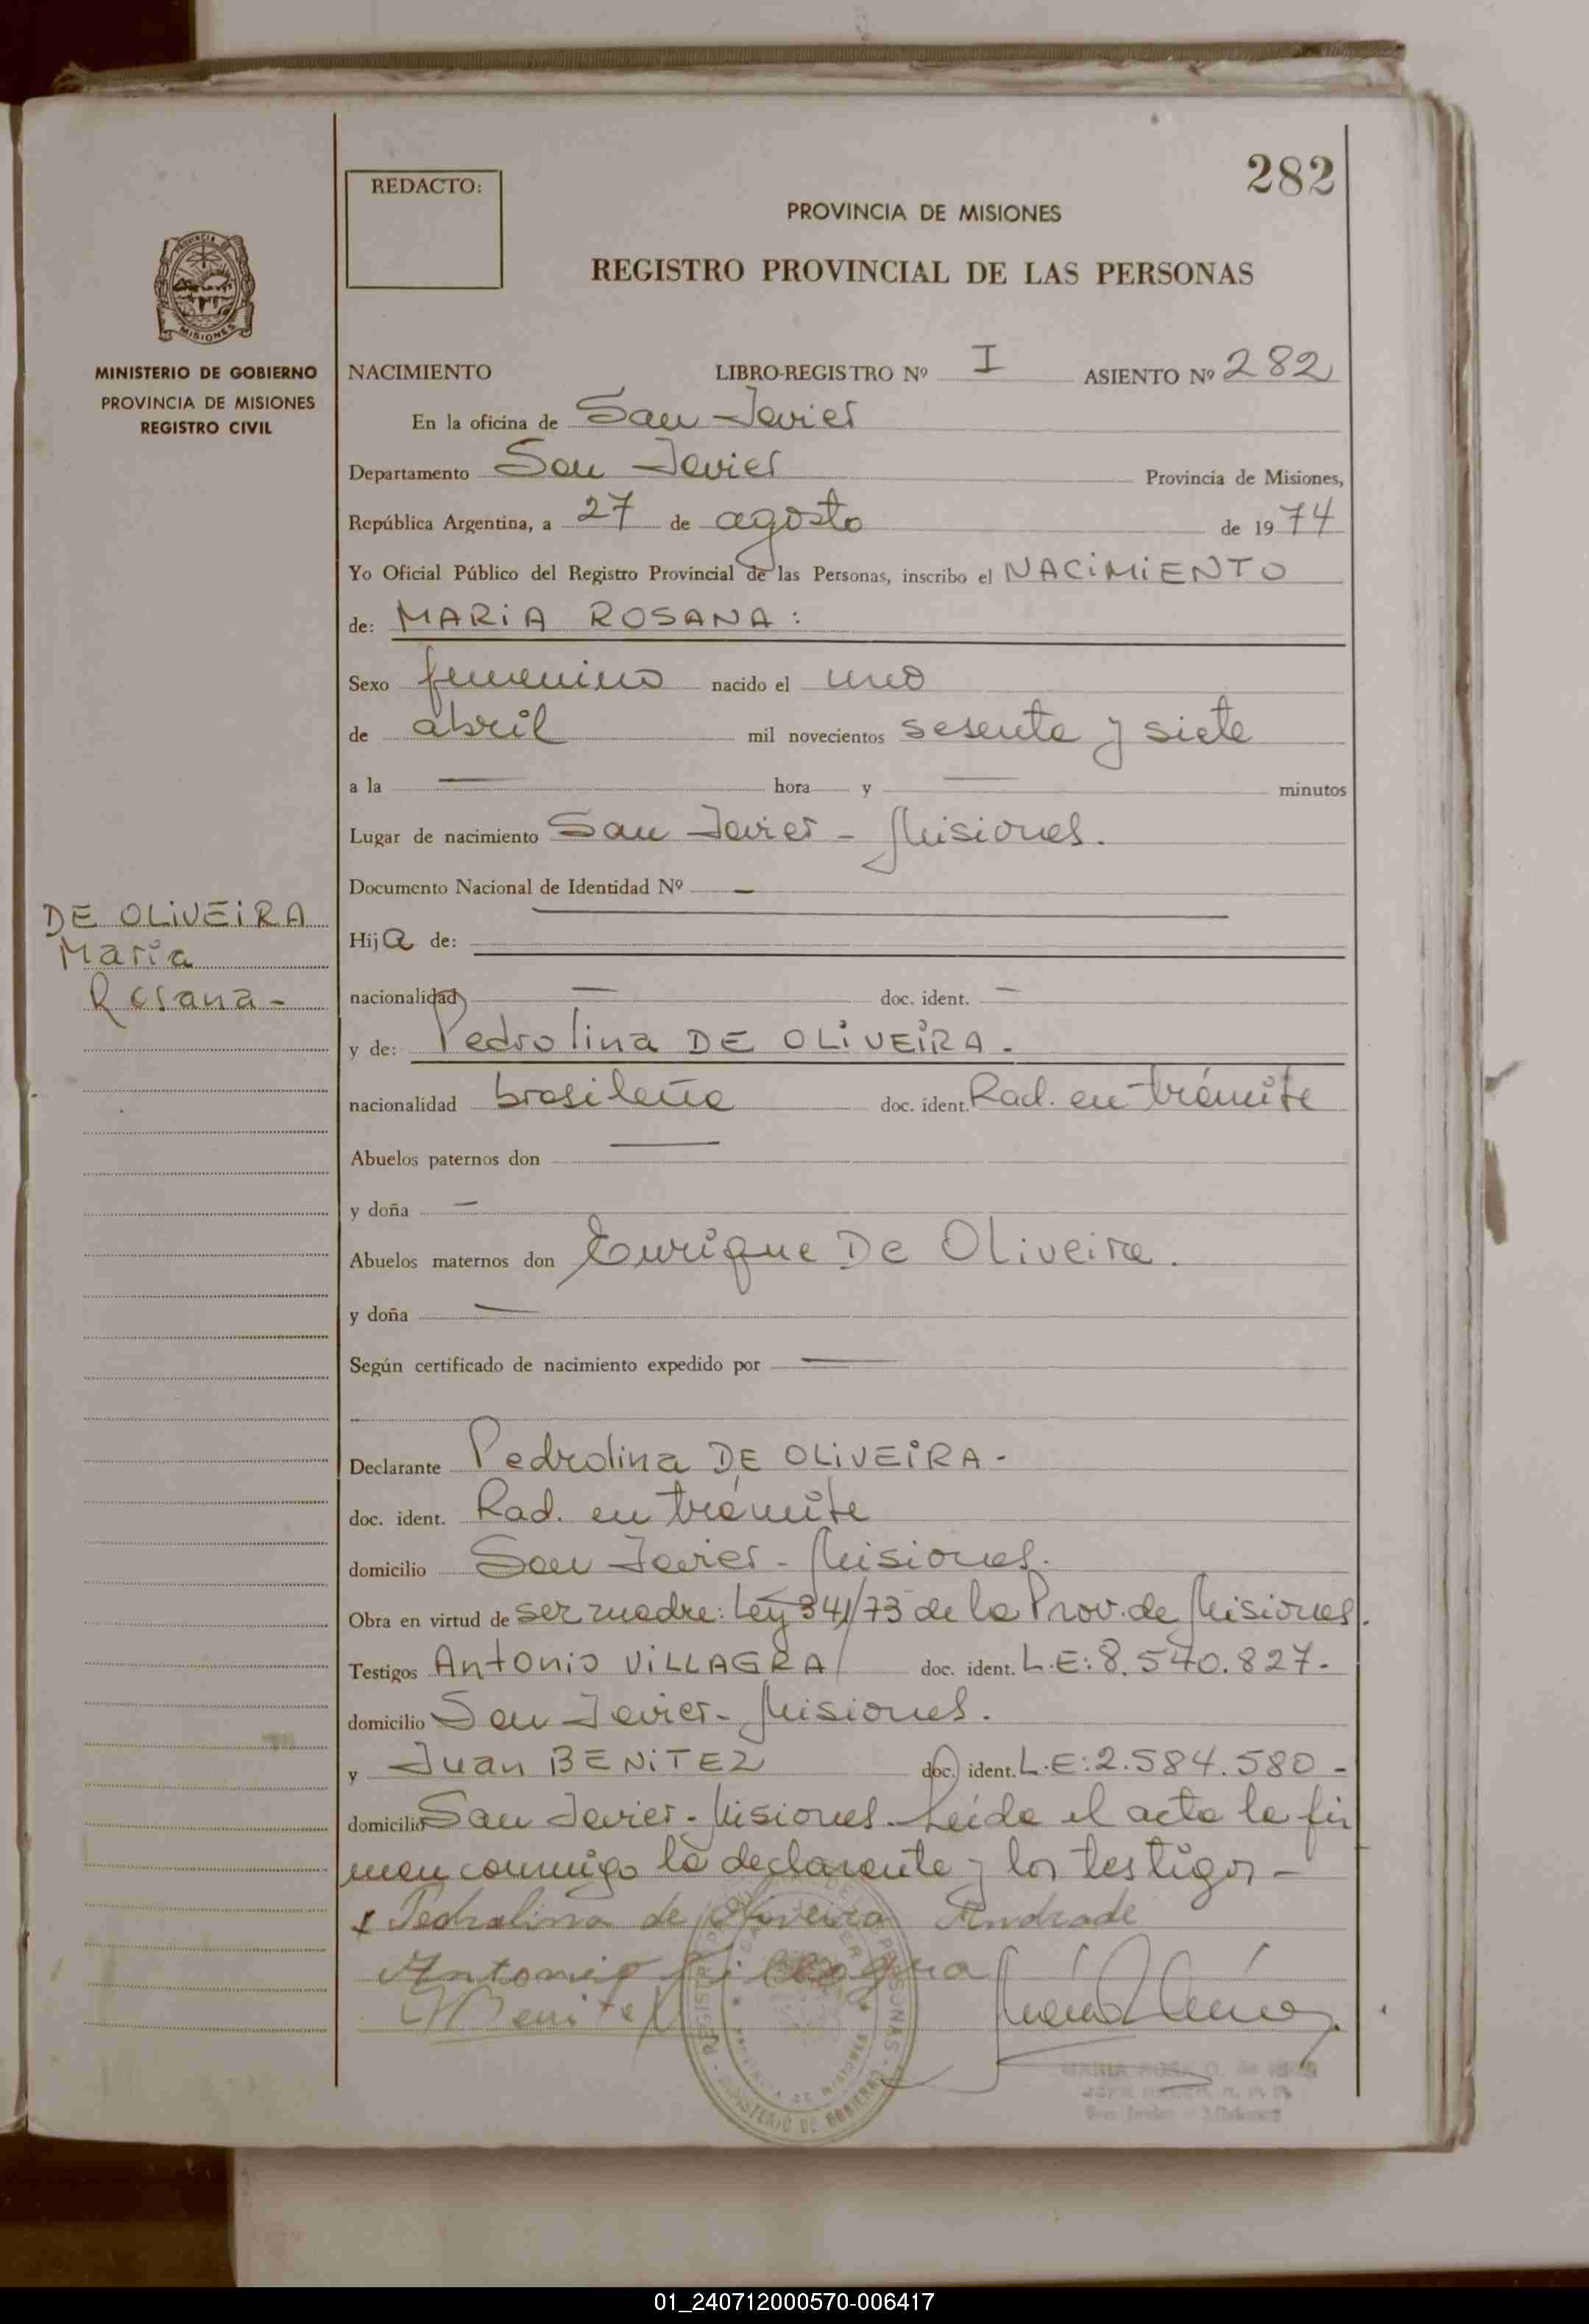 282
REDACTO:
PROVINCIA DE MISIONES
REGISTRO PROVINCIAL DE LAS PERSONAS
PROVINCIA DE
MISIONES
MINISTERIO DE GOBIERNO
PROVINCIA DE MISIONES
REGISTRO CIVIL
NACIMIENTO LIBRO-REGISTRO Nº I ASIENTO Nº 282
En la oficina de San Javier
Departamento San Javier Provincia de Misiones,
República Argentina, a 27 de agosto de 1974
Yo Oficial Público del Registro Provincial de las Personas, inscribo el NACIMIENTO
de: MARIA ROSANA:
Sexo femenino nacido el uno
de abril mil novecientos sesenta y siete
a la — hora y — minutos
Lugar de nacimiento San Javier - Misiones.
Documento Nacional de Identidad Nº —
DE OLIVEIRA
Maria
Rosana-
Hija de:
nacionalidad — doc. ident. —
y de: Pedrolina DE OLIVEIRA.
nacionalidad brasileña doc. ident. Rad. en trámite
Abuelos paternos don —
y doña —
Abuelos maternos don Enrique De Oliveira.
y doña —
Según certificado de nacimiento expedido por —
Declarante Pedrolina DE OLIVEIRA-
doc. ident. Rad. en trámite
domicilio San Javier - Misiones.
Obra en virtud de ser madre: Ley 341/73 de la Prov. de Misiones.
Testigos Antonio VILLAGRA doc. ident. L.E: 8.540.827-
domicilio San Javier - Misiones.
y Juan BENITEZ doc. ident. L.E: 2.584.580-
domicilio San Javier - Misiones. Leída el acta la fir
man conmigo la declarante y los testigos-
x Pedralina de Oliveira Andrade
Antonio Villagra
Benitez
REGISTRO PERSONAS
MINISTERIO DE GOBIERNO
PROVINCIA DE MISIONES
MARIA ROSA
San Javier - Misiones
01_240712000570-006417